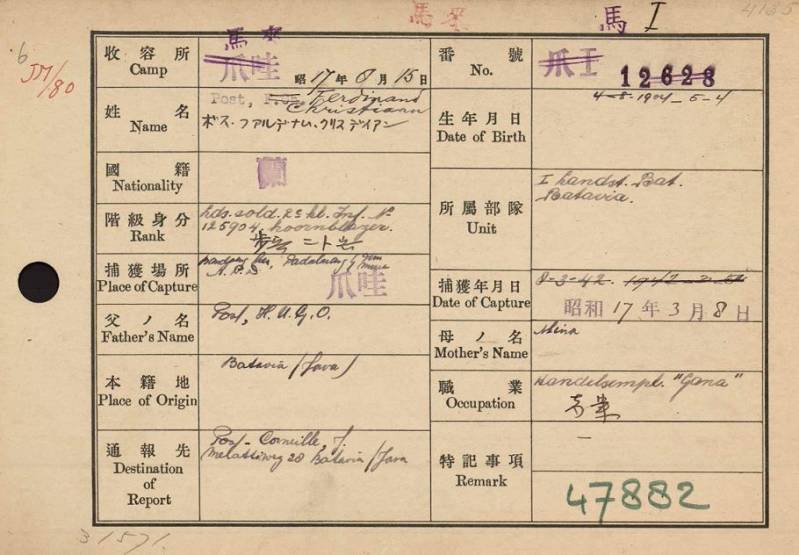 馬來
馬 I
4165
6
JM/80
收容所
Camp
馬來
爪哇
昭 17年 8月 15日
番號
No.
爪 I
12628
姓名
Name
Post, F. Ferdinand
Christiaan
ポス・フアルデナム・クリスデイアン
生年月日
Date of Birth
4-8-1904 - 5-4
國籍
Nationality
蘭
所屬部隊
Unit
I handst. Bat.
Batavia.
階級身分
Rank
hds. sold. 2e kl. Inf. No
125904, hoornblazer.
捕獲場所
Place of Capture
爪哇
捕獲年月日
Date of Capture
8-3-42.
昭和 17年 3月 8日
父ノ名
Father's Name
Post, H.U.G.O.
母ノ名
Mother's Name
Mina
本籍地
Place of Origin
Batavia (Java)
職業
Occupation
Handelsempl. "Gana"
通報先
Destination
of
Report
Post-Corneille, J.
Batavia/Java
特記事項
Remark
—
47882
31571.